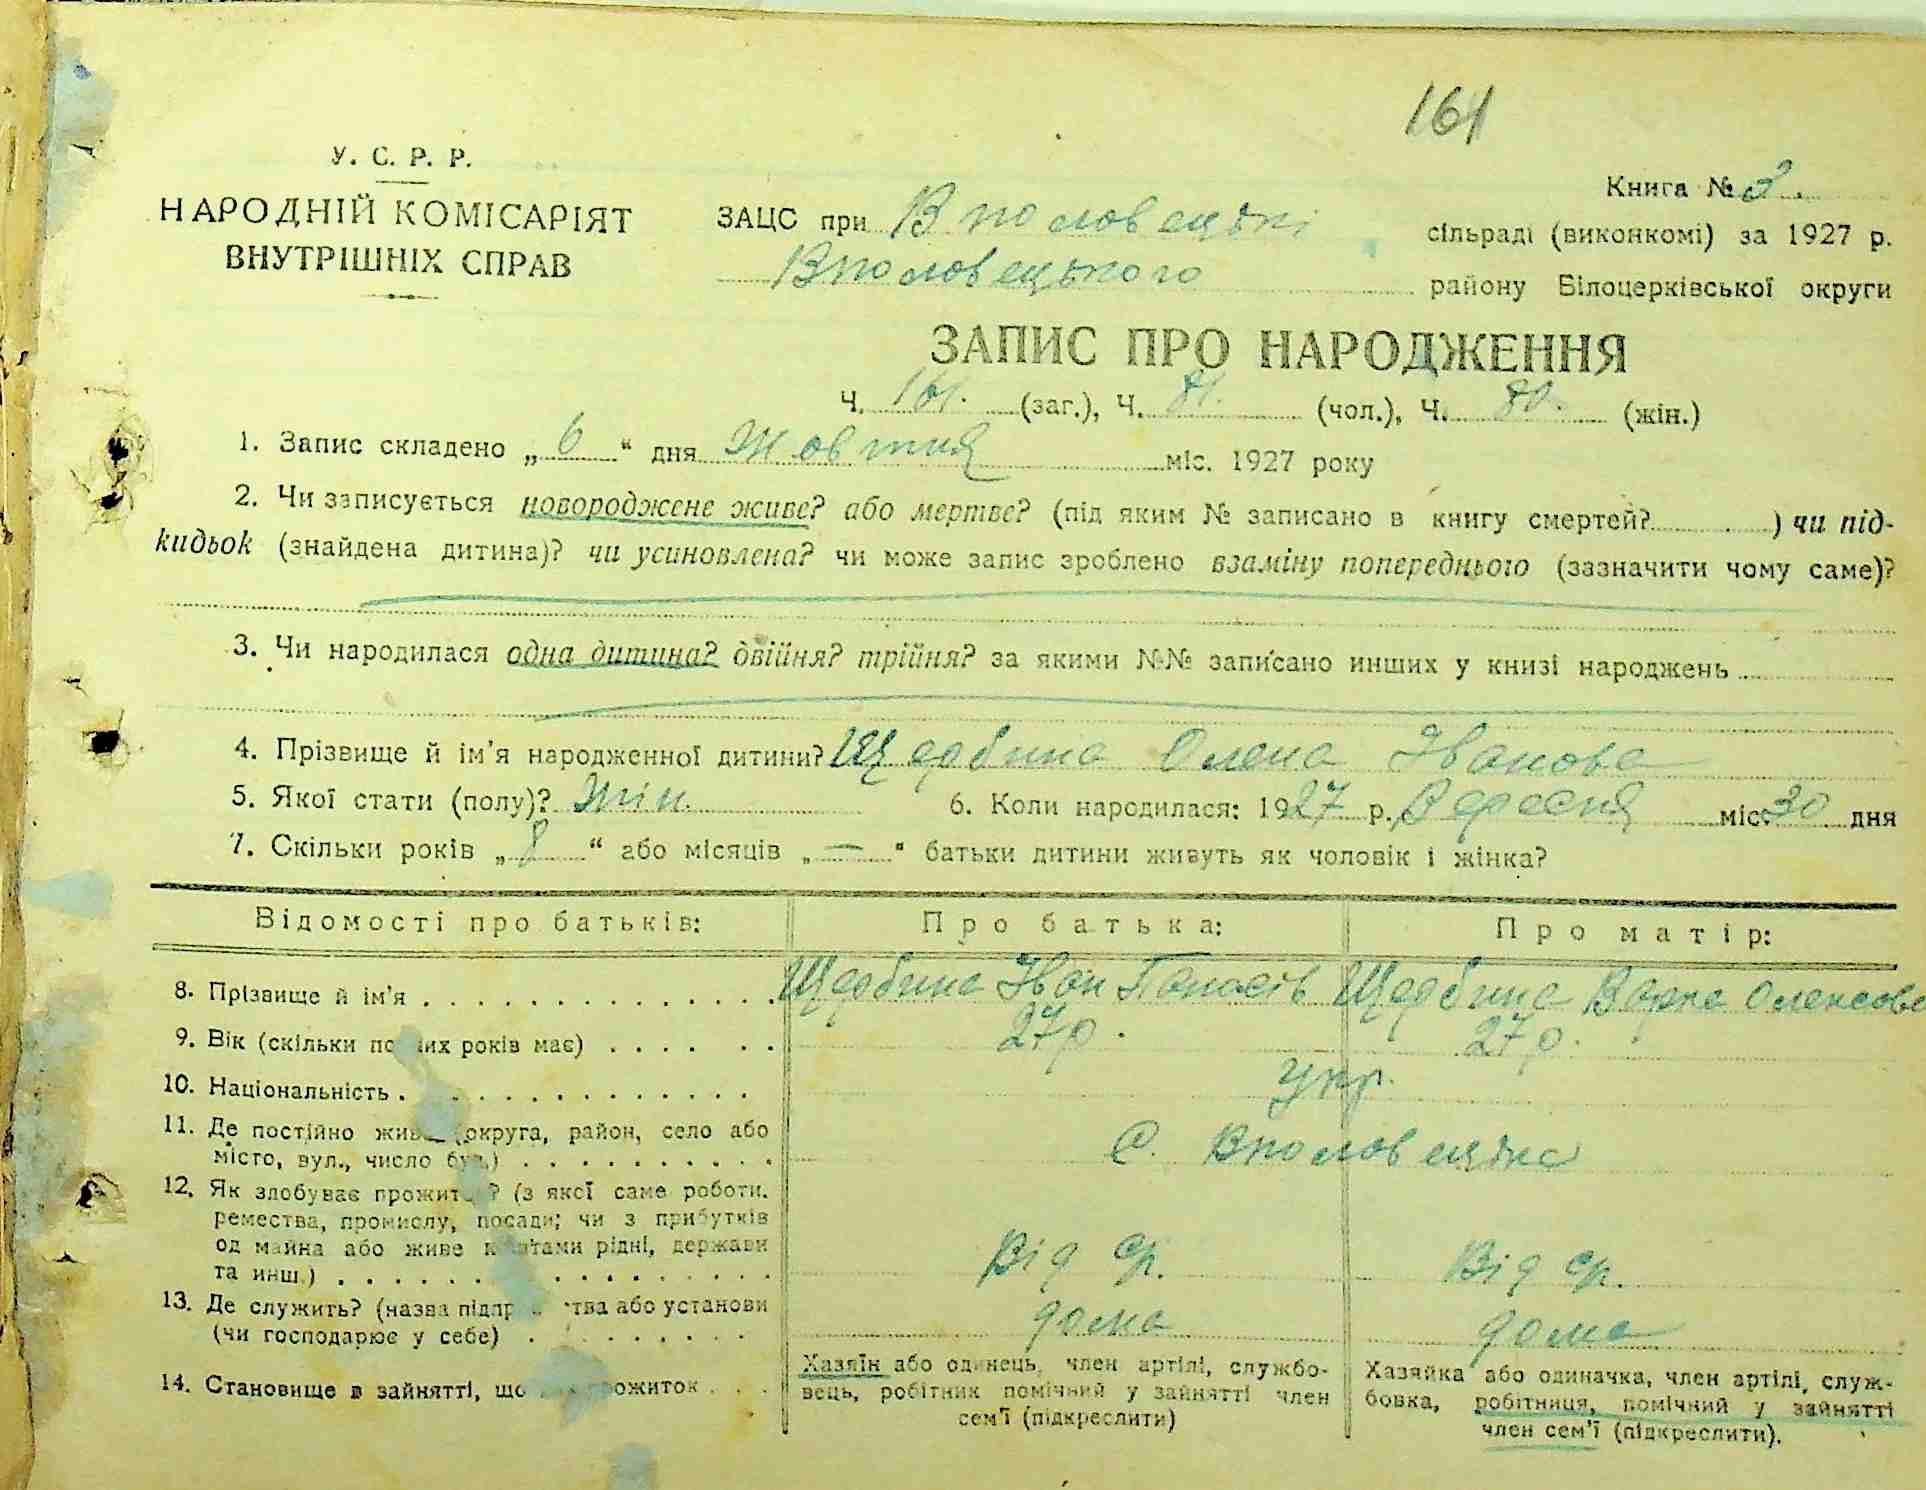 161
У. С. Р. Р.
НАРОДНІЙ КОМІСАРІЯТ
ВНУТРІШНІХ СПРАВ
Книга № 3.
ЗАЦС при Вполовецькі сільраді (виконкомі) за 1927 р.
Вполовецького району Білоцерківської округи
ЗАПИС ПРО НАРОДЖЕННЯ
Ч. 161. (заг.), Ч. 81. (чол.), Ч. 80. (жін.)
1. Запис складено „ 6 “ дня Жовтня міс. 1927 року
2. Чи записується новороджене живе? або мертве? (під яким № записано в книгу смертей? ) чи під-
кидьок (знайдена дитина)? чи усиновлена? чи може запис зроблено взаміну попереднього (зазначити чому саме)?
3. Чи народилася одна дитина? двійня? трійня? за якими №№ записано инших у книзі народжень
4. Прізвище й ім'я народженної дитини? Щербина Олена Іванова
5. Якої стати (полу)? Жін. 6. Коли народилася: 1927 р. Вересня міс. 30 дня
7. Скільки років „ 8 “ або місяців „ — “ батьки дитини живуть як чоловік і жінка?
Відомості про батьків: Про батька: Про матір:
8. Прізвище й ім'я . . . . Щербина Іван Панасів Щербина Варка Олексова
9. Вік (скільки повних років має) . . . . 27 р. 27 р.
10. Національність . . . . укр.
11. Де постійно живе (округа, район, село або
місто, вул., число буд.) . . . . С. Вполовецька
12. Як здобуває прожиток? (з якої саме роботи,
ремества, промислу, посади; чи з прибутків
од майна або живе коштами рідні, держави
та инш.) . . . . Від ср. Від ср.
13. Де служить? (назва підприємства або установи
(чи господарює у себе) . . . . дома дома
14. Становище в зайнятті, що дає прожиток . . .
Хазяїн або одинець, член артілі, службо-
вець, робітник помічний у зайнятті член
сем'ї (підкреслити)
Хазяйка або одиначка, член артілі, служ-
бовка, робітниця, помічний у зайнятті
член сем'ї (підкреслити).